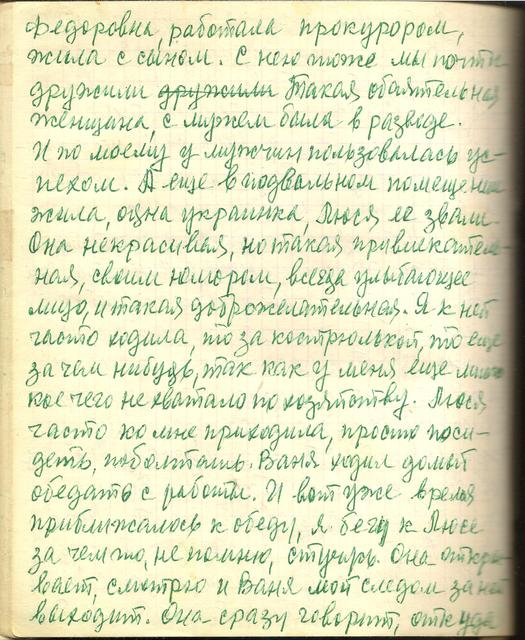 Федоровна, работала прокурором,
жила с сыном. С нею тоже мы почти
дружили дружили Такая обаятельная
женщина, с мужем была в разводе.
И по моему у мужчин пользовалась ус-
пехом. А еще в подвальном помещении
жила, одна украинка, Люся ее звали.
Она некрасивая, но такая привлекатель-
ная, своим юмором, всегда улыбающее
лицо, и такая доброжелательная. Я к ней
часто ходила, то за кострюлькой, то еще
за чем нибудь, так как у меня еще много
кое чего не хватало по хозяйству. Люся
часто ко мне приходила, просто поси-
деть, поболтать. Ваня ходил домой
обедать с работы. И вот уже время
приближалось к обеду, я бегу к Люсе
за чем то, не помню, стучусь. Она откры-
вает, смотрю и Ваня мой следом за ней
выходит. Она сразу говорит, откуда